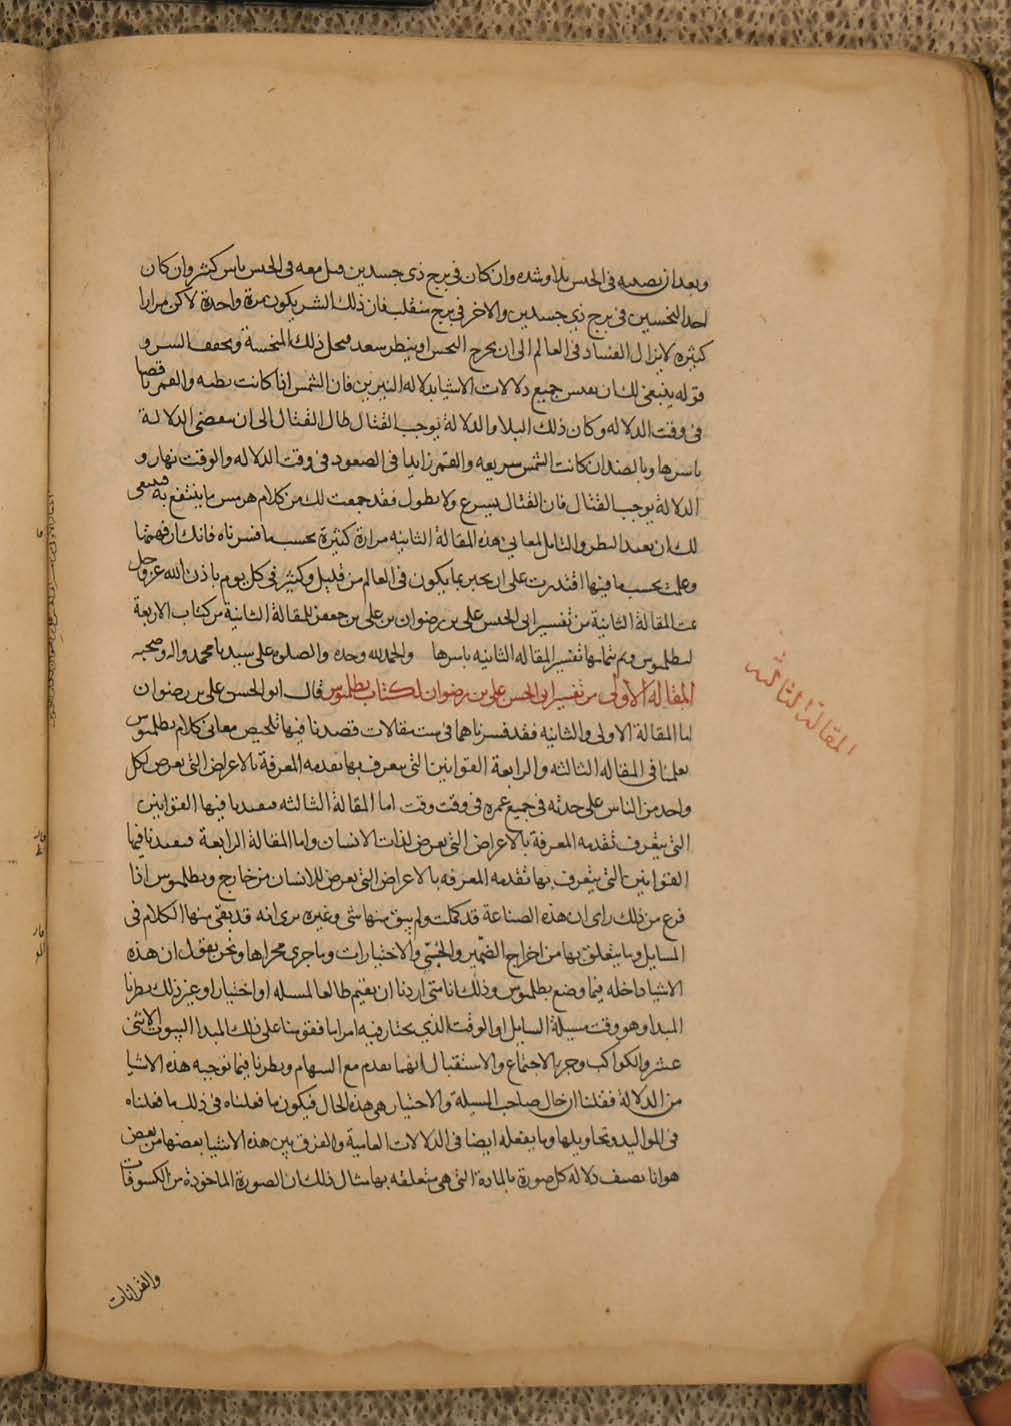 وبعد ان نصفه فى الحبس بلا وشده وان كان فى برج ذى جسدين قبل معه فى الحبس ناس كثير وان كان
احد النحسين فى برج ذى جسدين والاخر فى برج منقلب فان ذلك الشر يكون مرة واحدة لاكن مرارا
كثيره لا يزال الفساد فى العالم الى ان يخرج النحس او ينظر سعد فيحل ذلك المنحسة ويخفف الشر و
قوله ينبغى لك ان تقيس جميع دلالات الاشيا بدلاله النيرين فان الشمس اذا كانت بطيه والقمر ناقصا
فى وقت الدلاله وكان ذلك البلا والدلالة توجب القتال طال القتال الى ان تنقضى الدلالة
باسرها وبالضد ان كانت الشمس سريعه والقمر زايدا فى الصعود فى وقت الدلاله والوقت نهار و
الدلالة توجب القتال فان القتال يسرع ولا يطول فقد جمعت لك من كلام هرمس ما ينتفع به فينبغى
لك ان تعيد النظر والتامل لمعانى هذه المقالة الثانيه مرارة كثيرة بحسب ما فسرناه فانك ان فهمتها
وعملت بحسب ما فيها اقتدرت على ان تخبر بما يكون فى العالم من قليل وكثير فى كل يوم باذن الله عز وجل
تمت المقالة الثانية من تفسير ابى الحسن على بن رضوان بن على بن جعفر للمقالة الثانية من كتاب الاربعة
لبطلميوس وتم بتمامها تفسير المقاله الثانيه باسرها والحمد لله وحده والصلوه على سيدنا محمد واله وصحبه
المقاله الاولى من تفسير ابى الحسن على بن رضوان لكتاب بطلميوس قال ابو الحسن على بن رضوان
اما المقالة الاولى والثانيه فقد فسرناهما فى ست مقالات قصدنا فيها تلخيص معانى كلام بطلميوس
يعلمنا فى المقاله الثالثه والرابعة القوانين التى يتعرف بها تقدمه المعرفة بالاعراض التى تعرض لكل
واحد من الناس على حدته فى جميع عمره فى وقت وقت اما المقالة الثالثه فيفيدنا فيها القوانين
التى يتعرف تقدمه المعرفة بالاعراض التى تعرض لذات الانسان واما المقالة الرابعة فيفيدنا فيها
القوانين التى يتعرف بها تقدمه المعرفه بالاعراض التى تعرض للانسان من خارج وبطلميوس اذا
فرع من ذلك راى ان هذه الصناعة قد كملت ولم يبق منها شى وغيره يرى انه قد بقى منها الكلام فى
المسايل وما يتعلق بها من اخراج الضمير والخبى والاختيارات وما جرى مجراها ونحن نقول ان هذه
الاشيا داخله فيما وضع بطلميوس وذلك انا متى اردنا ان نقيم طالعا لمسله او اختيار او غير ذلك نظرنا
المبدا وهو وقت مسيلة السايل او الوقت الذى يختار فيه امرا ما فقومنا على ذلك المبدا البيوت الاثنى
عشر والكواكب وجز الاجتماع والاستقبال ايهما تقدم مع السهام ونظرنا فيما توجبه هذه الاشيا
من الدلالة فقلنا ان حال صاحب المسيلة والاختيار هى هذه الحال فيكون ما فعلناه فى ذلك ما فعلناه
فى المواليد وتحاويلها وما يفعله ايضا فى الدلالات العامية والفرق بين هذه الاشيا بعضها من بعض
هو انا نصف دلاله كل صورة بالمادة التى هى متعلقه بها مثال ذلك ان الصورة الماخوذة من الكسوفات
والقرانات
المقالة الثالثه